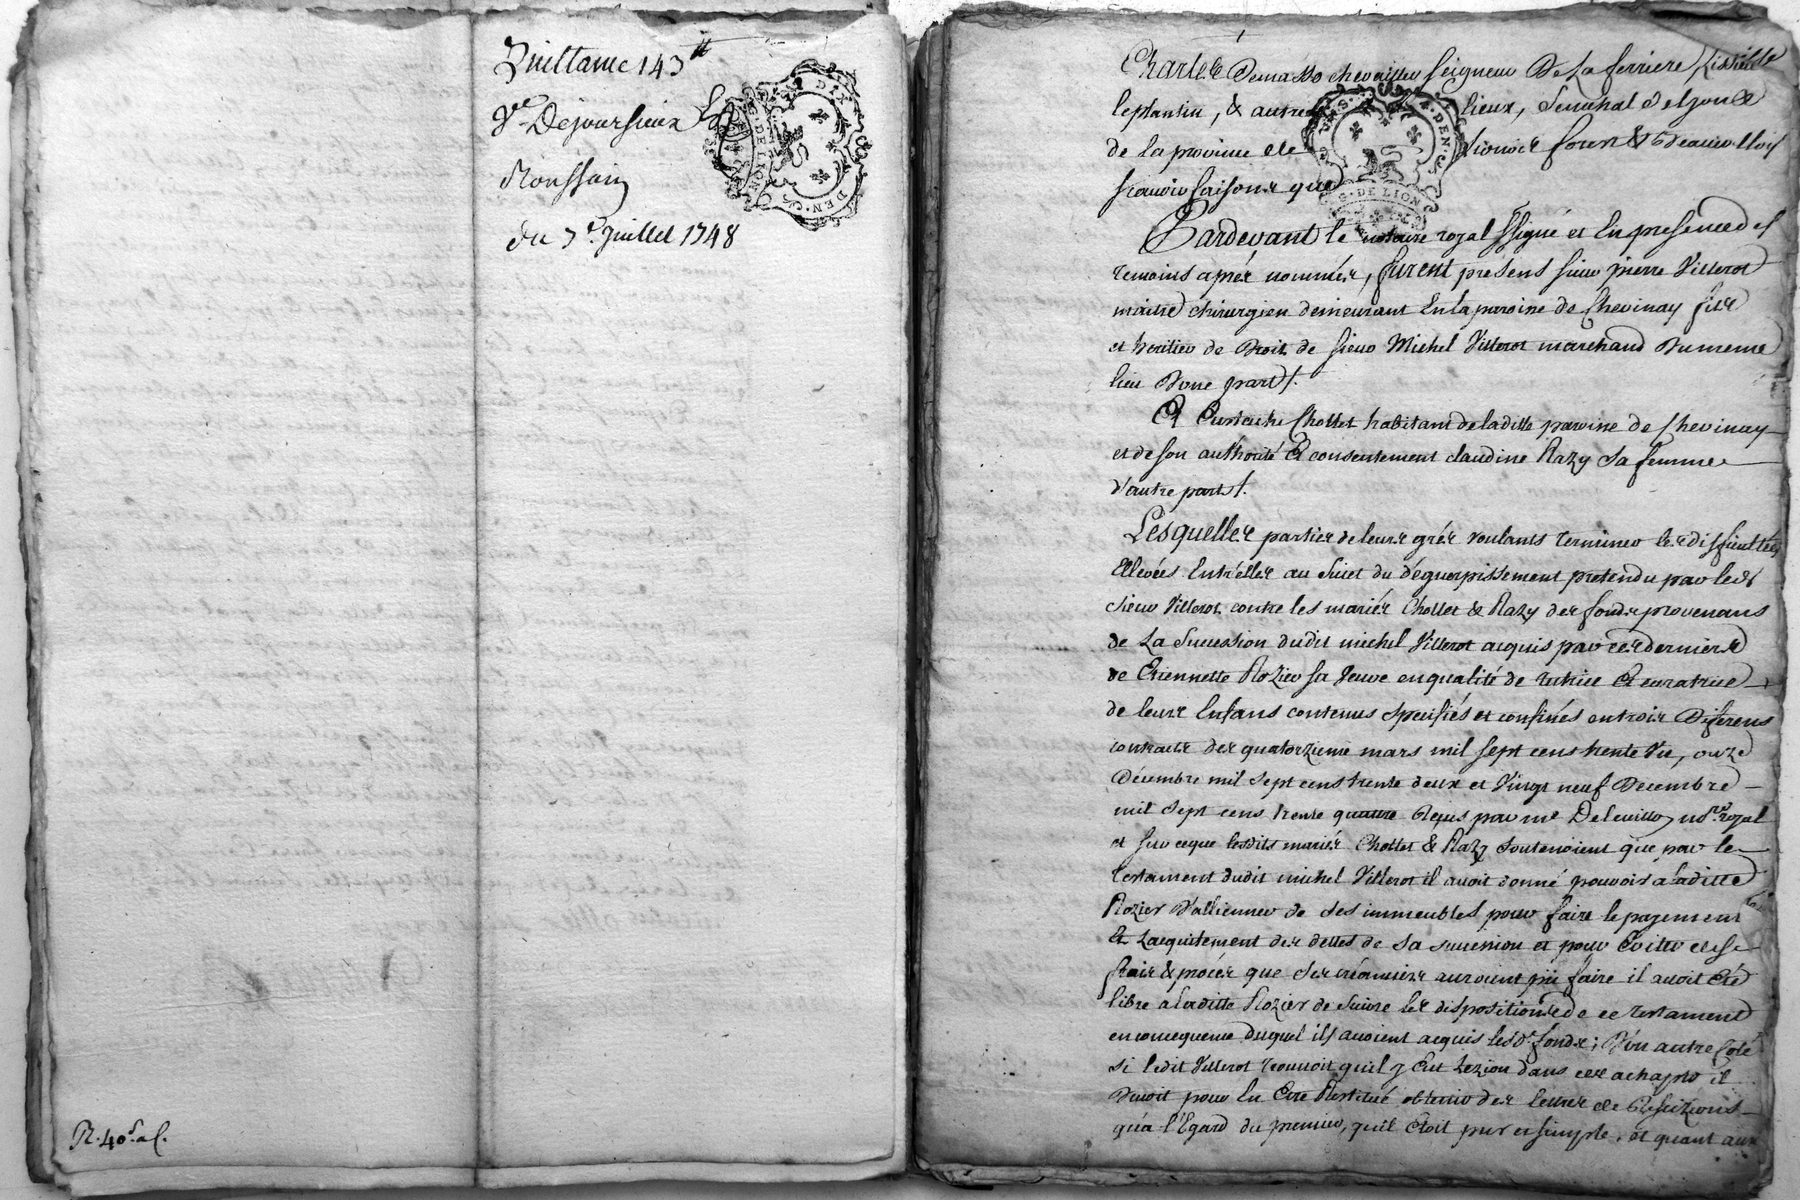 Quittance 143ᵗᵗ
Vᵉ Dejoursieux
Roussain
du 7ᵉ Juillet 1748
DIX DEN.
G. DE LION
R. 40ˢ
Charles Demasso chevallier seigneur De La ferriere Lissieu
leplantin, & autres lieux, Senechal
de la province de Lionois forest & Beaujollois
scavoir faisons que
G. DE LION
Pardevant le notaire royal ssigné et En presence des
temoins aprés nommés, furent presens sieur pierre Villerot
maitre chirurgien demeurant En la paroisse de Chevinay fils
et heritier de Droit de sieur Michel Villerot marchand Du meme
lieu D'une part/.
Et Eustache Chollet habitant de laditte paroisse de Chevinay
et de son authorité Et consentement claudine Razy sa femme
d'autre part/.
Lesquelles parties de leurs grés voulants terminer les difficultés
Ellevées Entr'elles au sujet du déguerpissement pretendu par ledt
sieur Villerot contre les mariés Chollet & Razy des fonds provenans
de La Succession dudit michel Villerot acquis par ces derniers
de Etiennette Rozier sa Veuve en qualité de tutrice Et curatrice
de leurs Enfans contenus specifiés et confinés en trois Diferens
contracts des quatorzieme mars mil sept cens trente un, onze
Décembre mil sept cens trente deux et Vingt neuf Decembre
mil sept cens trente quattre Reçus par me noʳᵉ royal
et sur ceque lesdits mariés Chollet & Razy soutenoient que par le
testament dudit michel Villerot il avoit donné pouvoir a laditte
Rozier D'alliener de ses immeubles pour faire le payement
Et Lacquitement des dettes de sa succession et pour Eviter les
frais & procés que des créanciers auroient pû faire il avoit Eté
libre a laditte Rozier de suivre les dispositions de ce testament
en consequence duquel ils avoient acquis lesdᵗˢ fonds; D'un autre Coté
si ledit Villerot trouvoit quil y Eut Lezion dans ces achapts il
Devoit pour En Etre Restitué obtenir des lettres de Rescizions
qu'a l'Egard du premier, qu'il Etoit pur et simple, et quant aux